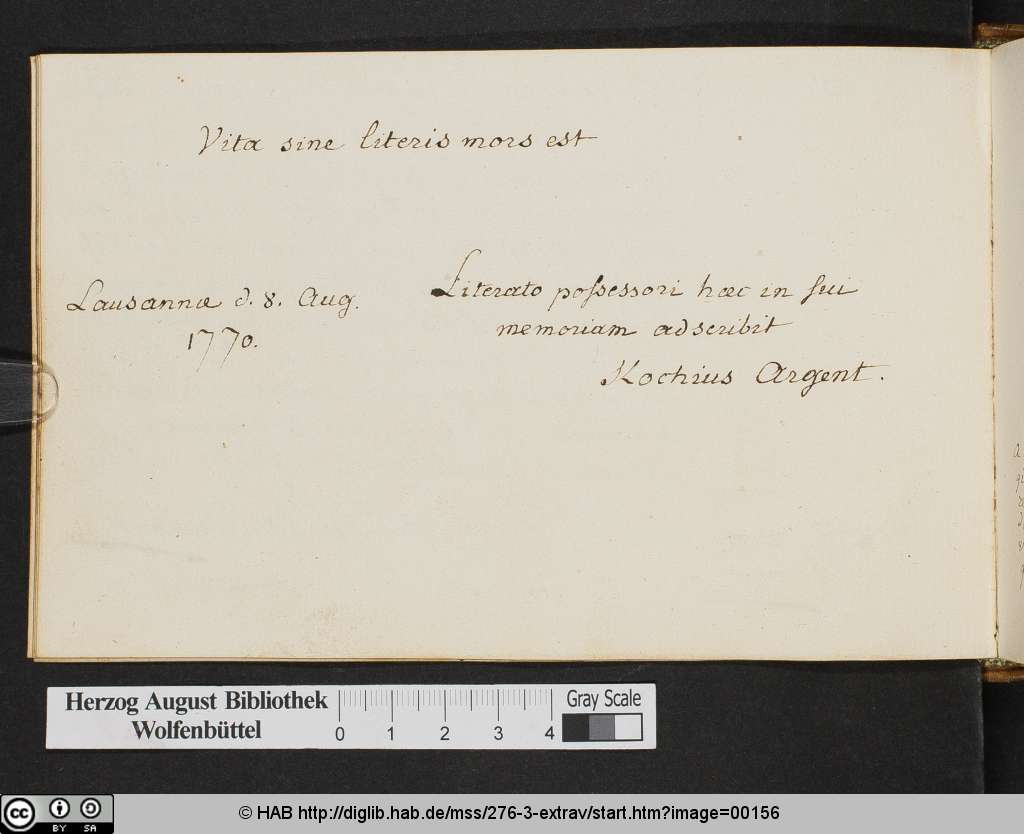 Vita sine literis mors est
Literato possessori hæc in sui
memoriam adscribit
Kochius Argent.
Lausannæ d. 8. Aug.
1770.
Herzog August Bibliothek
Wolfenbüttel
0 1 2 3 4
Gray Scale
cc BY SA
© HAB http://diglib.hab.de/mss/276-3-extrav/start.htm?image=00156